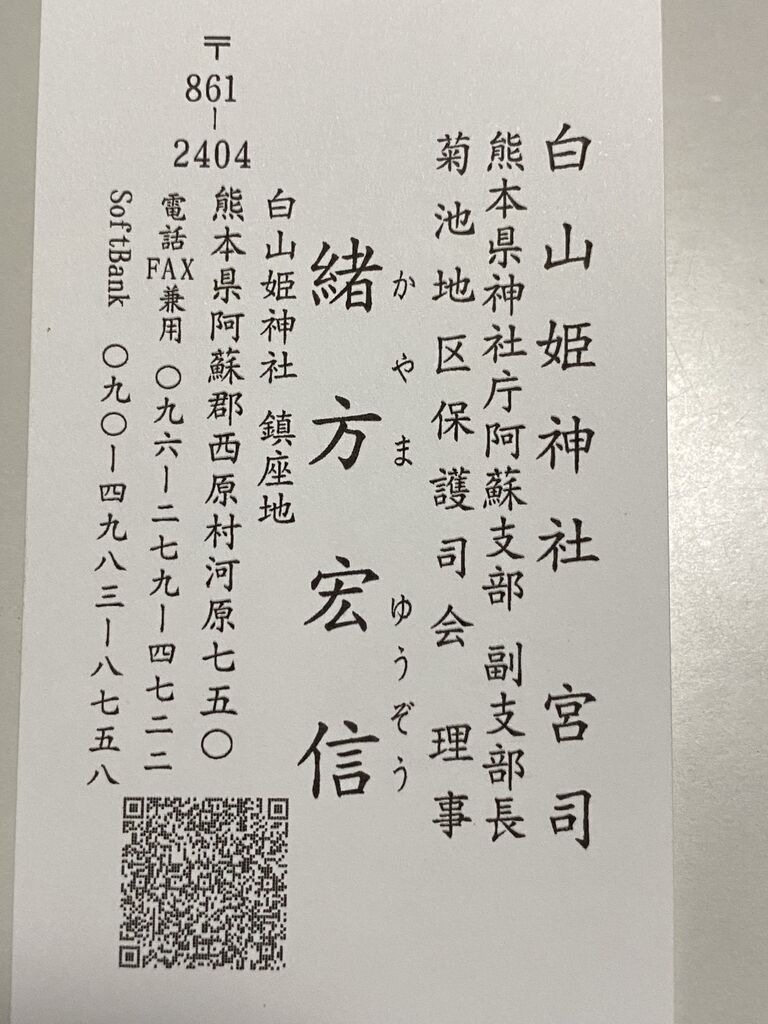 白山姫神社 宮司
熊本県神社庁阿蘇支部 副支部長
菊池地区保護司会 理事
かやま ゆうぞう
緒方宏信
白山姫神社 鎮座地
〒861-2404
熊本県阿蘇郡西原村河原七五〇
電話FAX兼用 〇九六ー二七九ー四七二二
SoftBank 〇九〇ー四九八三ー八七五八